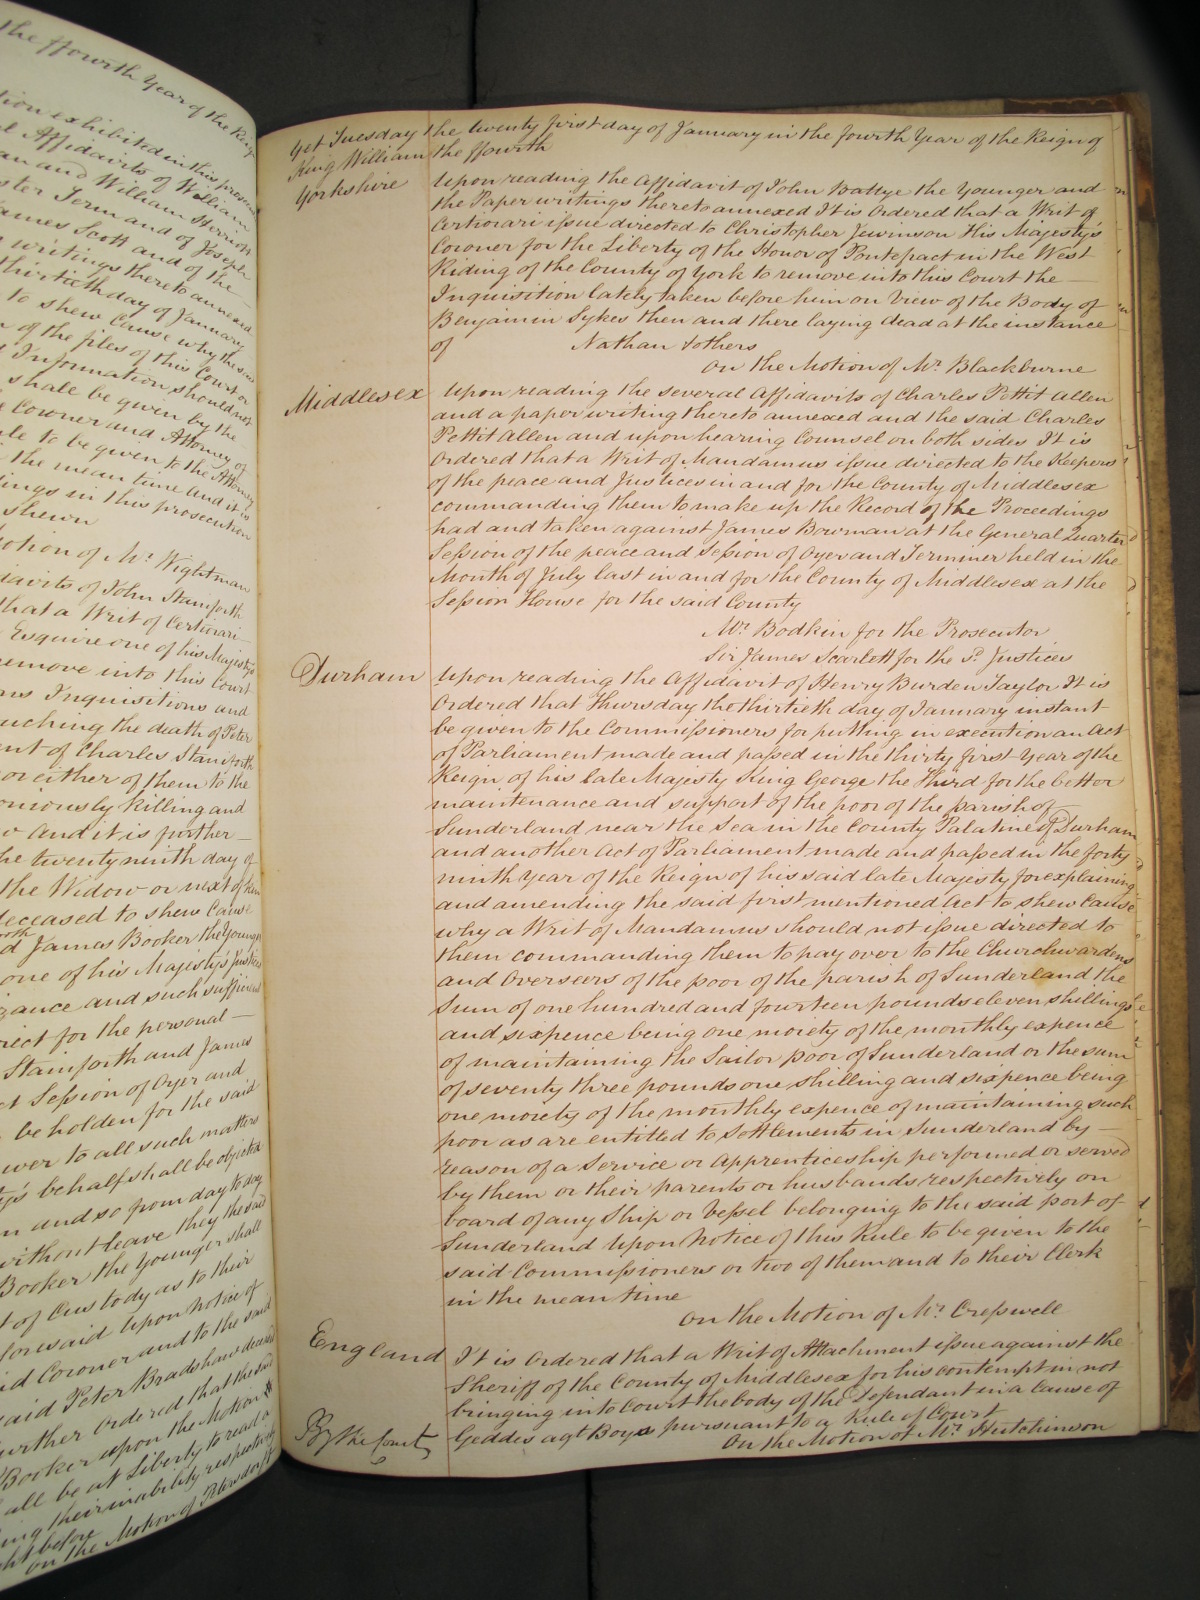 the ffourth Year of the Reign
tion exhibited in this prosecution
l Affidavits of William
an and William Herriott
ster Term and of Joseph
ames Scott and of the
writings thereto annexed
thirtieth day of January
to shew Cause why the said
n of the files of this Court or
Information should not
shall be given by the
Coroner and Attorney of
le to be given to the Attorney
the mean time and it is
ings in this prosecution
shewn
otion of Mr. Wightman
davits of John Staniforth
that a Writ of Certiorari
Esquire one of his Majesty's
remove into this Court
ns Inquisitions and
ouching the death of Peter
ent of Charles Staniforth
or either of them to the
oniously killing and
And it is further
he twenty ninth day of
the Widow or next of kin
deceased to shew Cause
d James Booker the Younger
one of his Majesty's Justices
gance and such sufficient
rict for the personal
Staniforth and James
t Session of Oyer and
be holden for the said
wer to all such matters
ty's behalf shall be objected
n and so from day to day
without leave they the said
Booker the younger shall
t of Custody as to their
foresaid Upon Notice of
id Coroner and to the said
said Peter Bradshaw deceased
urther Ordered that the said
Booker upon the Motion
all be at Liberty to read a
ing their inability respectively
ght before
On the Motion of Petersdorff
Yet Tuesday the twenty first day of January in the fourth Year of the Reign of
King William the ffourth
Yorkshire Upon reading the Affidavit of John Battye the Younger and
the Paper writings thereto annexed It is Ordered that a Writ of
Certiorari issue directed to Christopher Jewinson His Majesty's
Coroner for the Liberty of the Honor of Pontefract in the West
Riding of the County of York to remove into this Court the
Inquisition lately taken before him on View of the Body of
Benjamin Sykes then and there laying dead at the instance
of Nathan Sothers
On the Motion of Mr. Blackburne
Middlesex Upon reading the several Affidavits of Charles Pettit Allen
and a paper writing thereto annexed and the said Charles
Pettit Allen and upon hearing Counsel on both sides It is
Ordered that a Writ of Mandamus issue directed to the Keepers
of the peace and Justices in and for the County of Middlesex
commanding them to make up the Record of the Proceedings
had and taken against James Bowman at the General Quarter
Session of the peace and Session of Oyer and Terminer held in the
Month of July last in and for the County of Middlesex at the
Session House for the said County
Mr. Bodkin for the Prosecutor
Sir James Scarlett for the sd. Justices
Durham Upon reading the Affidavit of Henry Burden Taylor It is
Ordered that Thursday the thirtieth day of January instant
be given to the Commissioners for putting in execution an Act
of Parliament made and passed in the thirty first Year of the
Reign of his late Majesty King George the Third for the better
maintenance and support of the poor of the parish of
Sunderland near the Sea in the County Palatine of Durham
and another Act of Parliament made and passed in the forty
ninth Year of the Reign of his said late Majesty for explaining
and amending the said first mentioned Act to shew Cause
why a Writ of Mandamus should not issue directed to
them commanding them to pay over to the Churchwardens
and Overseers of the poor of the parish of Sunderland the
Sum of one hundred and fourteen pounds eleven shillings
and sixpence being one moiety of the monthly expence
of maintaining the Sailor poor of Sunderland or the sum
of seventy three pounds one shilling and sixpence being
one moiety of the monthly expence of maintaining such
poor as are entitled to Settlements in Sunderland by
reason of a Service or Apprenticeship performed or served
by them or their parents or husbands respectively on
board of any Ship or Vessel belonging to the said port of
Sunderland Upon Notice of this Rule to be given to the
said Commissioners or two of them and to their Clerk
in the mean time
On the Motion of Mr. Cresswell
England It is Ordered that a Writ of Attachment issue against the
Sheriff of the County of Middlesex for his contempt in not
bringing into Court the body of the Defendant in a Cause of
Geddes agt Boys pursuant to a Rule of Court
On the Motion of Mr. Hutchinson
By the Court